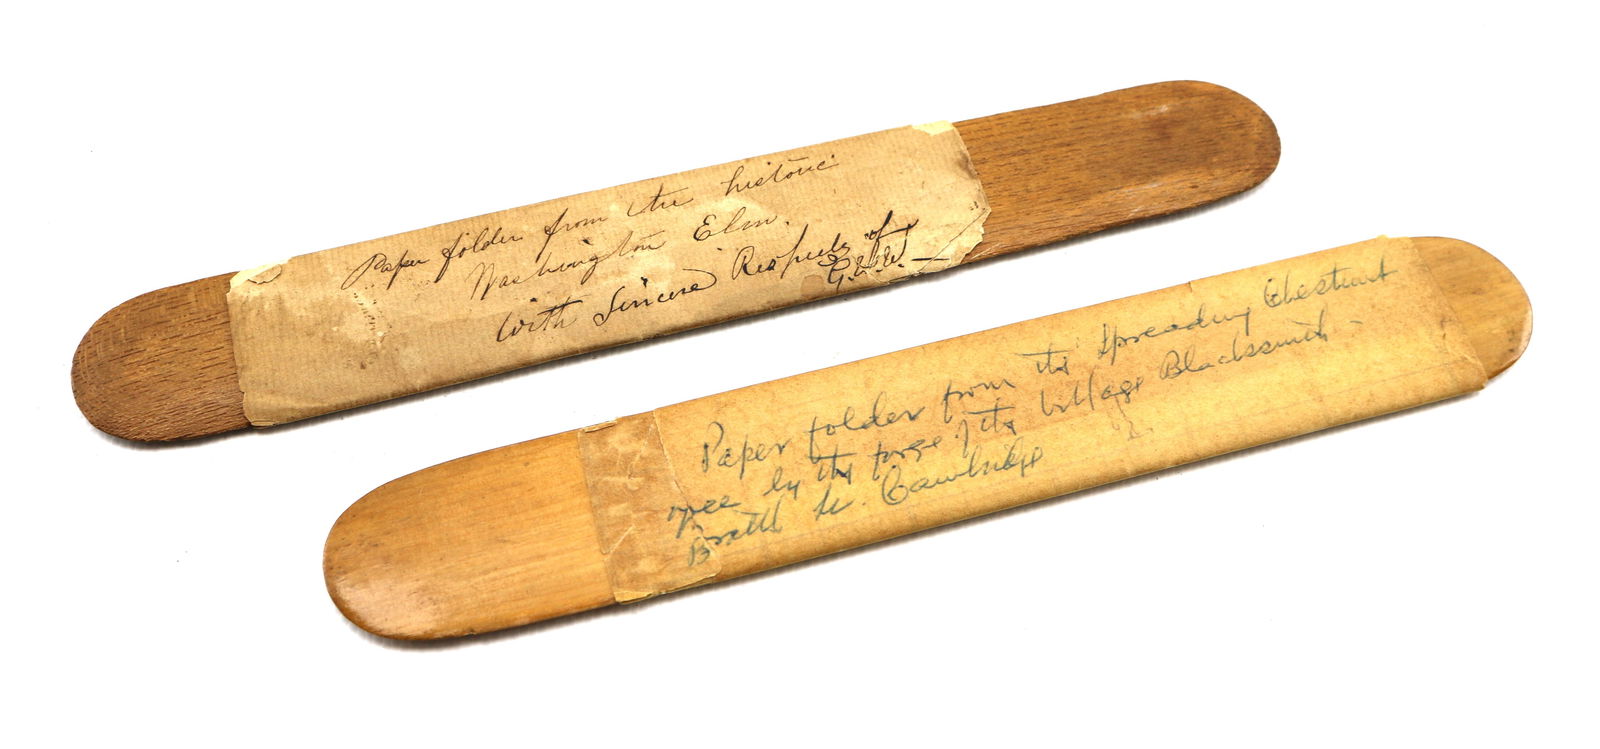 Paper folder from the historic
Washington Elm.
With Sincere Respects of
G.W.W.
Paper folder from the spreading Chestnut
tree by the forge of the Village Blacksmith -
Brattle St. Cambridge